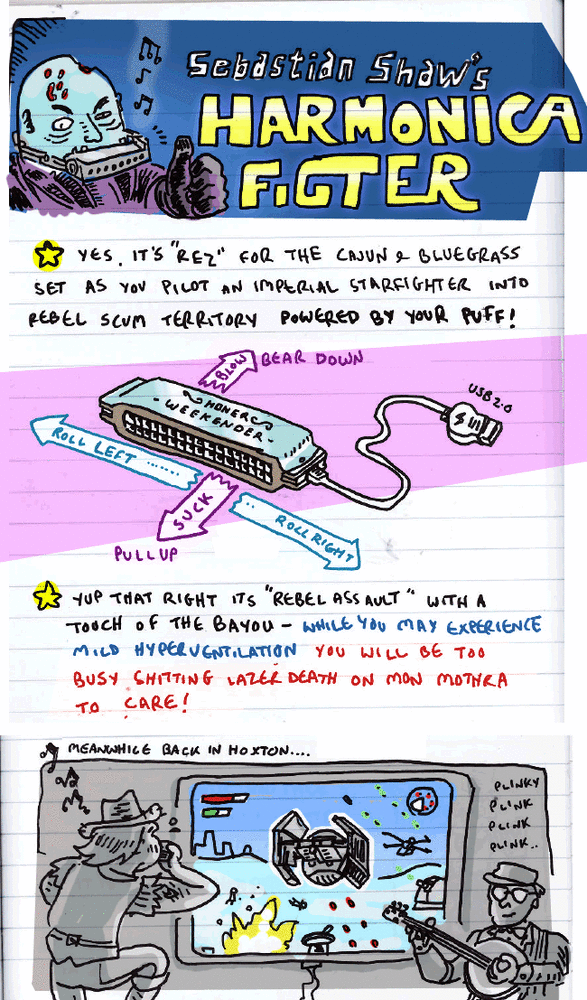 Sebastian Shaw's
HARMONICA
FIGTER
YES, IT'S "REZ" FOR THE CAJUN & BLUEGRASS
SET AS YOU PILOT AN IMPERIAL STARFIGHTER INTO
REBEL SCUM TERRITORY POWERED BY YOUR PUFF!
BLOW
BEAR DOWN
USB 2.0
WEEKENDER
ROLL LEFT ......
SUCK
ROLL RIGHT
PULL UP
YUP THAT RIGHT ITS "REBEL ASSAULT" WITH A
TOUCH OF THE BAYOU - WHILE YOU MAY EXPERIENCE
MILD HYPERVENTILATION YOU WILL BE TOO
BUSY SHITTING LAZER DEATH ON MON MOTHRA
TO CARE!
MEANWHILE BACK IN HOXTON....
PLINKY
PLINK
PLINK
PLINK..